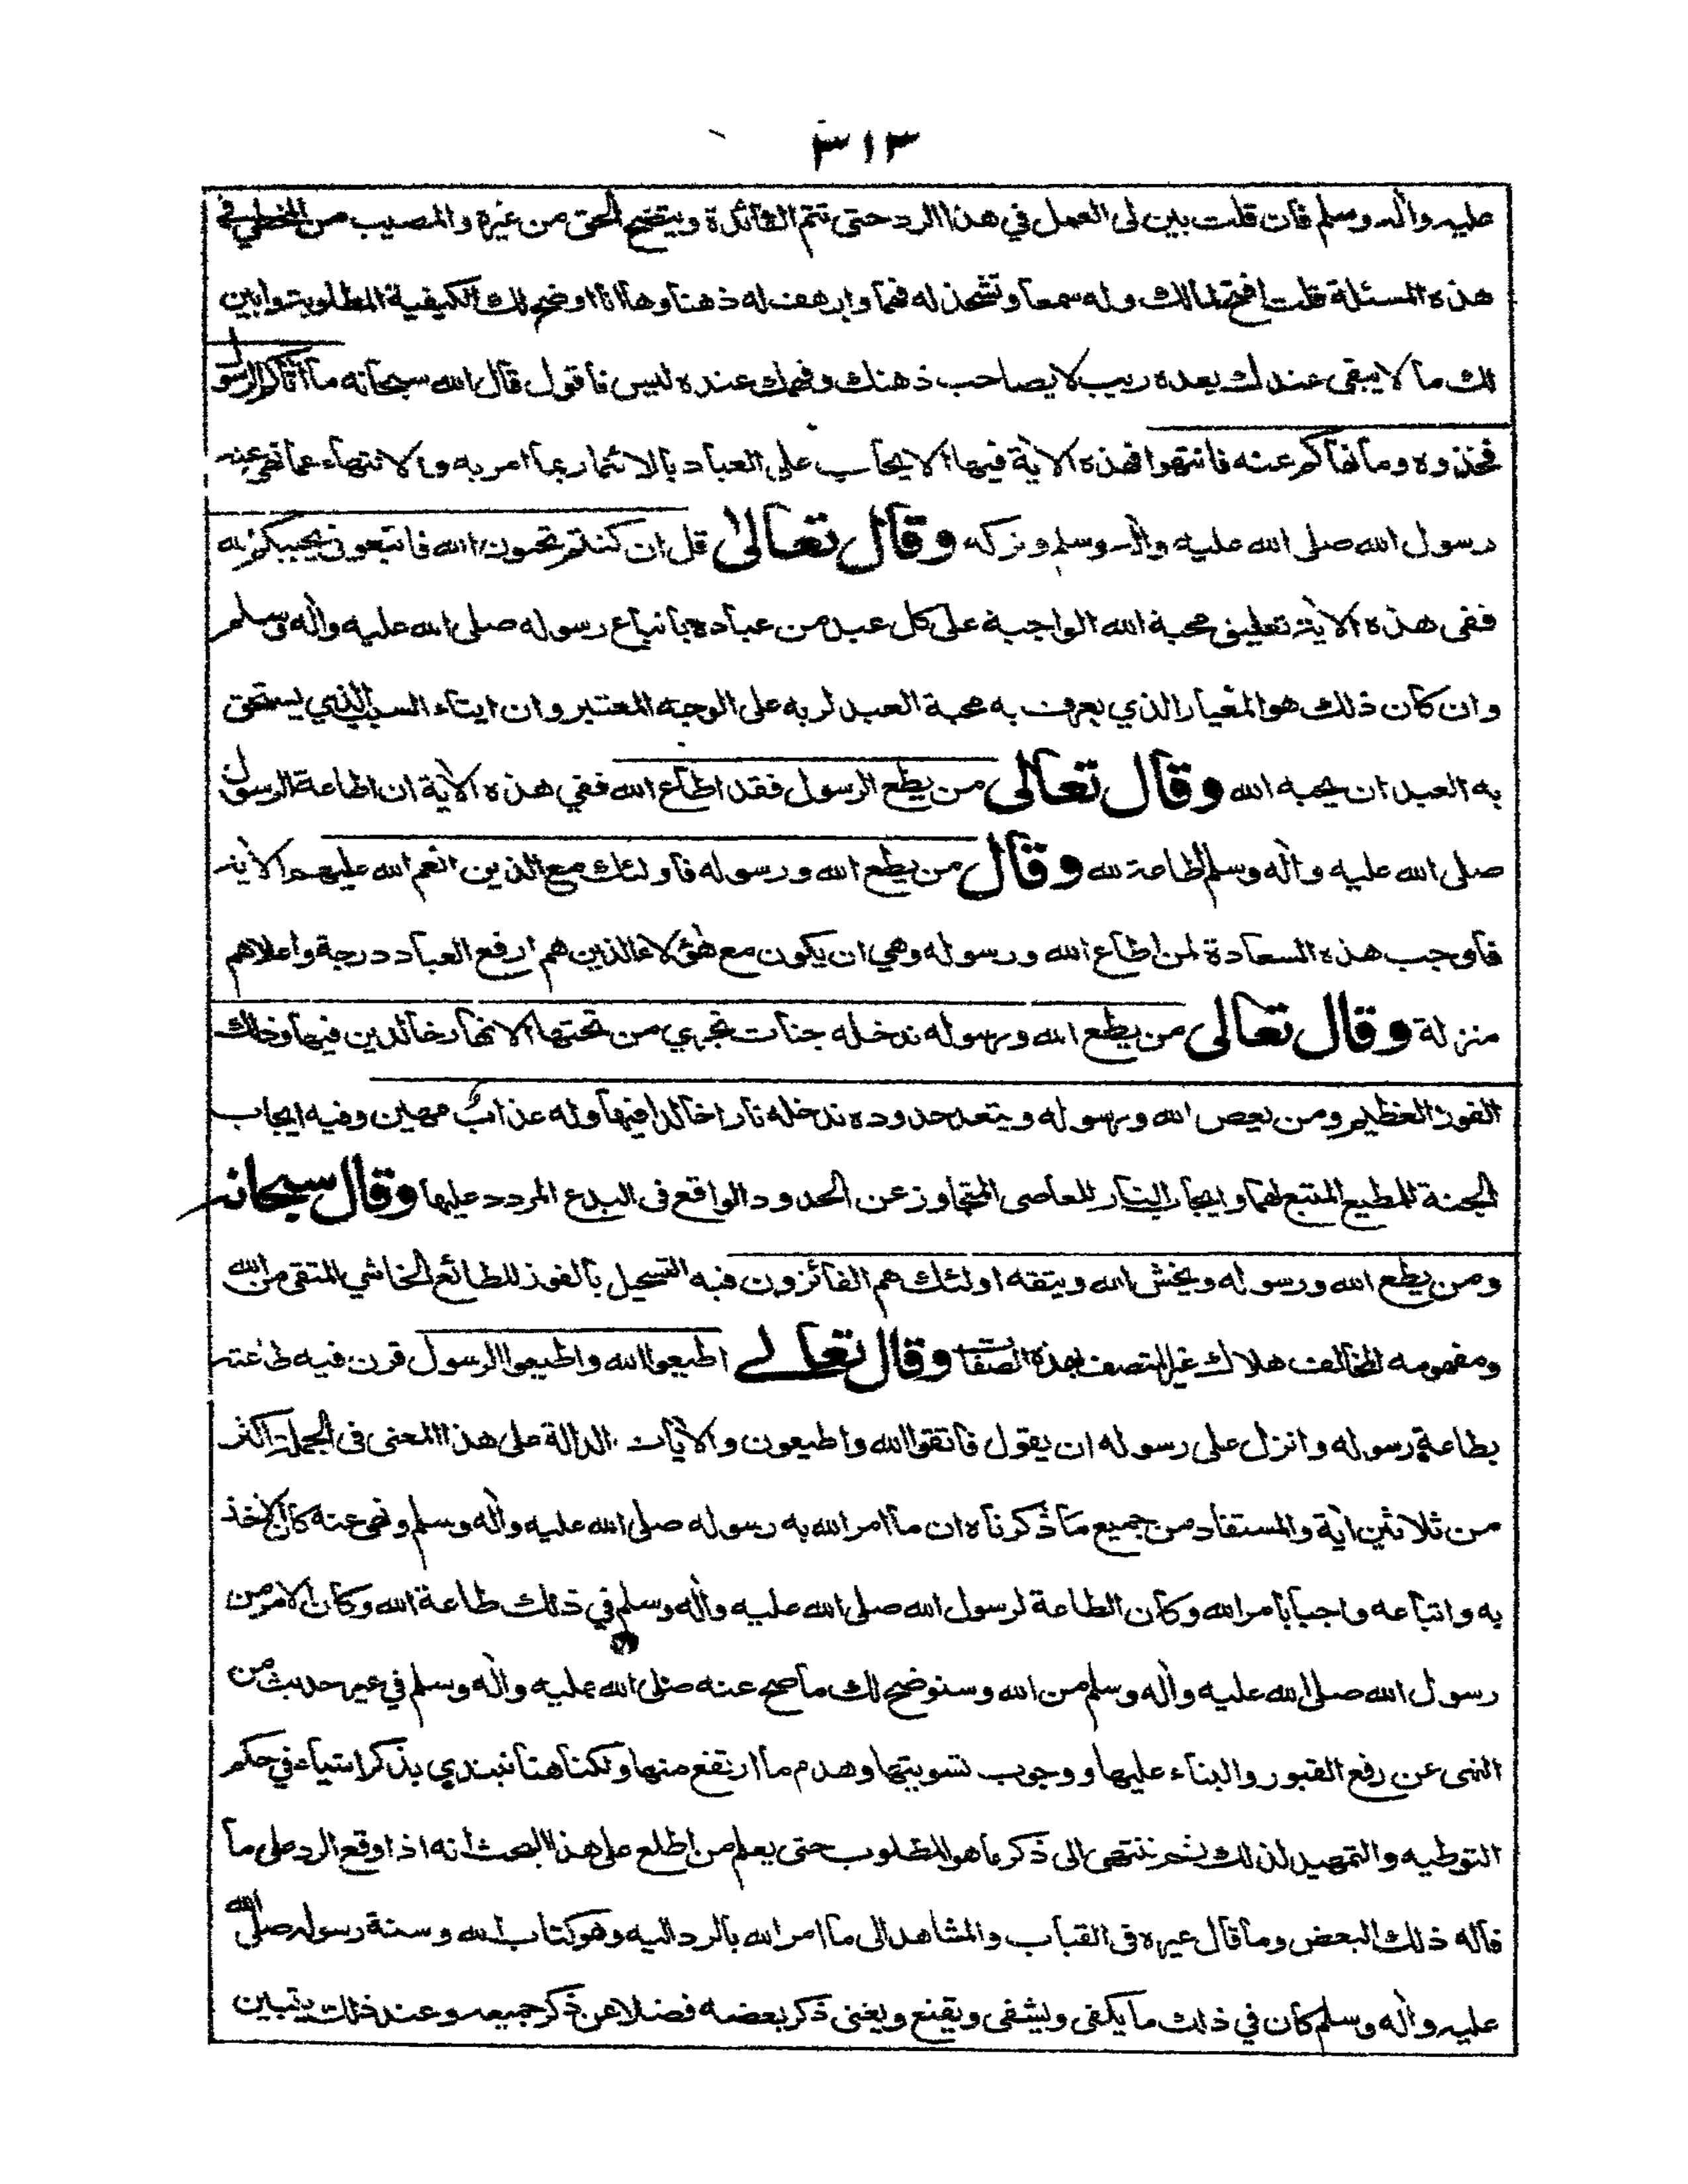 ٣١٣
عليه وآله وسلم فان قلت بين لى العمل في هذا الرد حتى تتم الفائدة ويتضح الحق من غيره والمصيب من المخطي في
هذه المسئلة قلت افتح لما لك وله سمعا وتشحذ له فهما وارهف له ذهنا وها انا اوضح لك الكيفية المطلوبة وابين
لك ما لا يبقى عندك بعده ريب لا يصاحب ذهنك وفهمك عنده لبس فاقول قال الله سبحانه ما آتاكم الرسول
فخذوه وما نهاكم عنه فانتهوا فهذه الاية فيها الايجاب على العباد بالائتمار بما امر به والانتهاء عما نهى عنه
رسول الله صلى الله عليه وآله وسلم وتركه وقال تعالى قل ان كنتم تحبون الله فاتبعونى يحببكم الله
ففى هذه الاية تعليق محبة الله الواجبة على كل عبد من عباده باتباع رسوله صلى الله عليه وآله وسلم
وان كان ذلك هو المعيار الذي يعرف به محبة العبد لربه على الوجه المعتبر وان ايتاء السبب الذي يستحق
به العبد ان يحبه الله وقال تعالى من يطع الرسول فقد اطاع الله ففي هذه الاية ان اطاعة الرسول
صلى الله عليه وآله وسلم اطاعة لله وقال من يطع الله ورسوله فاولئك مع الذين انعم الله عليهم الاية
فاوجب هذه السعادة لمن اطاع الله ورسوله وهي ان يكون مع هؤلاء الذين هم ارفع العباد درجة واعلاهم
منزلة وقال تعالى من يطع الله ورسوله ندخله جنات تجري من تحتها الانهار خالدين فيها وذلك
الفوز العظيم ومن يعص الله ورسوله ويتعد حدوده ندخله نارا خالدا فيها وله عذاب مهين وفيه ايجاب
الجنة للمطيع المتبع لهما وايجاب النار للعاصى المتجاوز عن الحدود الواقع فى البدع المردد عليها وقال سبحانه
ومن يطع الله ورسوله ويخش الله ويتقه اولئك هم الفائزون فبه التسجيل بالفوز للطائع الخاشي المتقى من الله
ومفهومه المخالف هلاك غير المتصف بهذه الصفات وقال تعالے اطيعوا الله واطيعوا الرسول قرن فيه طاعته
بطاعة رسوله وانزل على رسوله ان يقول فاتقوا الله واطيعون والآيات الدالة على هذا المعنى فى الجملة اكثر
من ثلاثين اية والمستفاد من جميع ما ذكرناه ان ما امر الله به رسوله صلى الله عليه وآله وسلم ونهى عنه كان الاخذ
به واتباعه واجبا بامر الله وكان الطاعة لرسول الله صلى الله عليه وآله وسلم في ذلك طاعة الله وكان الامر من
رسول الله صلى الله عليه وآله وسلم من الله وسنوضح لك ما صح عنه صلى الله عليه وآله وسلم في غير حديث من
النهى عن رفع القبور والبناء عليها ووجوب تسويتها وهدم ما ارتفع منها ولكنا هنا نبتدي بذكر اشياء في حكم
التوطيه والتمهيد لذلك ثم ننتهى الى ذكر ما هو المطلوب حتى يعلم من اطلع على هذا البحث انه اذا وقع الرد على ما
قاله ذلك البعض وما قال غيره فى القباب والمشاهد الى ما امر الله بالرد اليه وهو كتاب الله وسنة رسوله صلى الله
عليه وآله وسلم كان في ذلك ما يكفى ويشفى ويقنع ويغنى ذكر بعضه فضلا عن ذكر جميعه وعند ذلك يتبين